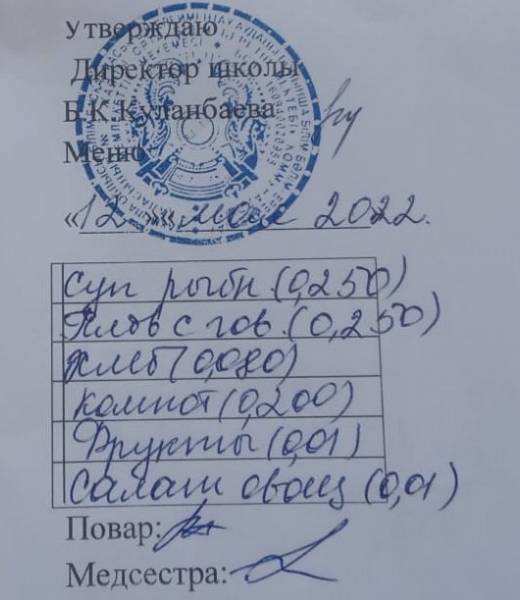 Утверждаю
Директор школы
Б.К.Куланбаева
Меню
«12»« мая 2022.
Суп рыбн.(0,250)
Плов с гов.(0,250)
Хлеб(0,080)
Компот(0,200)
Фрукты(0,01)
Салат овощ(0,01)
Повар:
Медсестра: